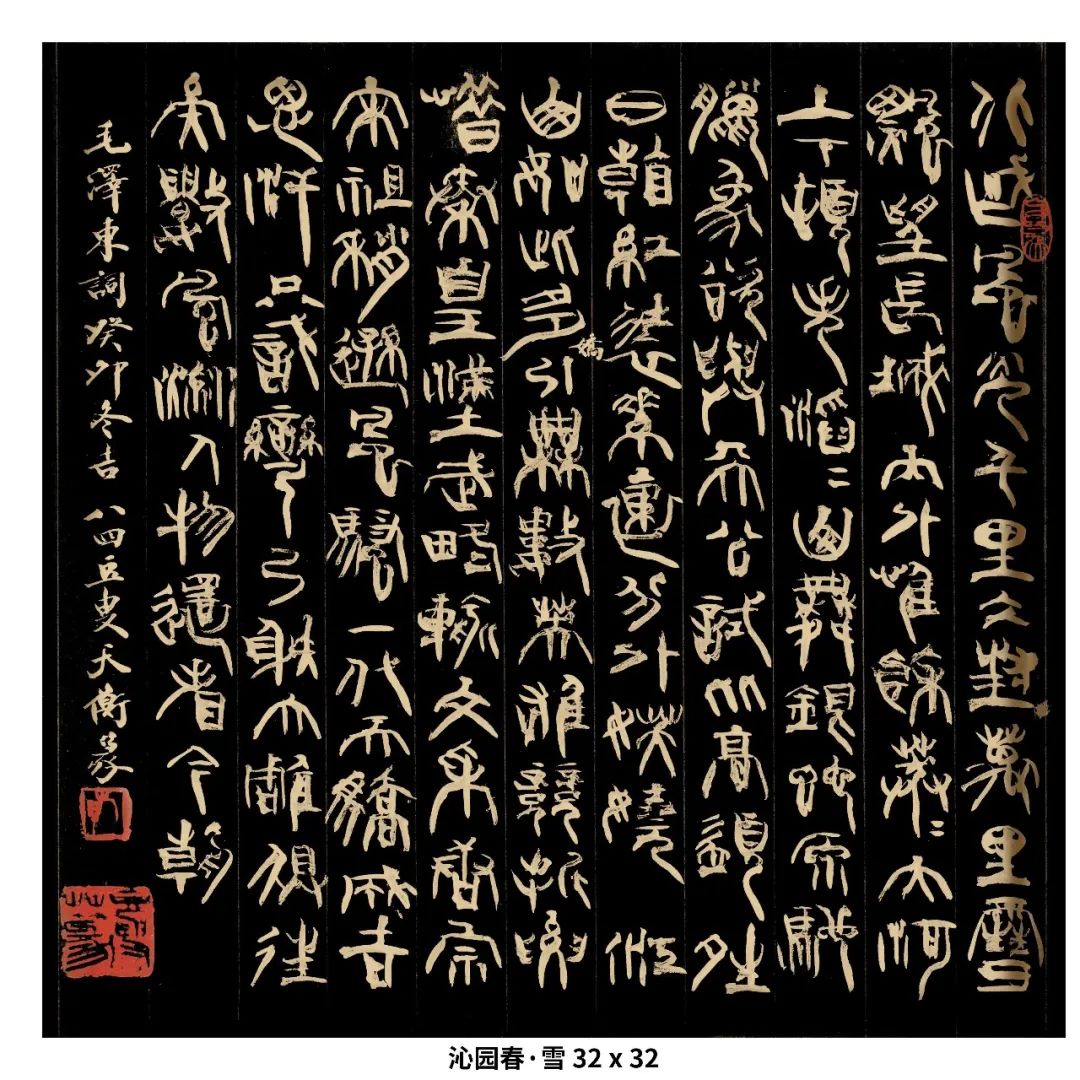 北國風光千里冰封萬里雪
飄望長城內外惟餘莽〻大河
上下頓失滔〻山舞銀蛇原馳
臘象欲與天公試比高須晴
日看紅裝素裹分外妖嬈江
山如此多嬌引無數英雄競折腰
惜秦皇漢武略輸文采唐宗
宋祖稍遜風騷一代天驕成吉
思汗只識彎弓射大雕俱往
矣數風流人物還看今朝
毛澤東詞癸卯冬吉八四豆叟天衡篆
沁园春·雪 32 x 32